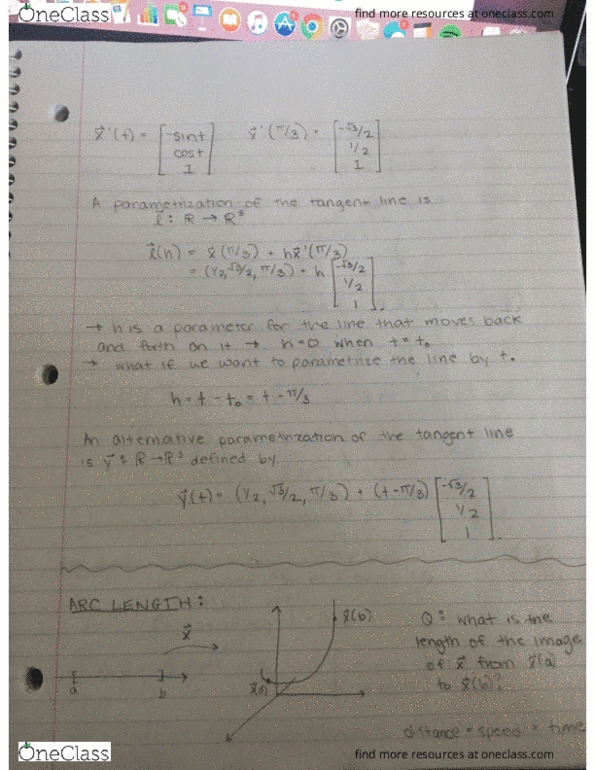 OneClass
find more resources at oneclass.com
x⃗'(t) = [-sint cost 1] x⃗'(π/3) = [-√3/2 1/2 1]
A parametrization of the tangent line is
l⃗ : R → R³
l⃗(h) = x⃗(π/3) + hx⃗'(π/3)
= (1/2, √3/2, π/3) + h [-√3/2 1/2 1].
→ h is a parameter for the line that moves back
and forth on it → h=0 when t=t₀
→ what if we want to parametrize the line by t.
h = t - t₀ = t - π/3
An alternative parametrization of the tangent line
is y⃗ : R→R³ defined by
y⃗(t) = (1/2, √3/2, π/3) + (t-π/3) [-√3/2 1/2 1].
ARC LENGTH:
x⃗
a
b
x⃗(a)
x⃗(b)
Q: what is the
length of the image
of x⃗ from x⃗(a)
to x⃗(b)?
distance = speed × time
OneClass
find more resources at oneclass.com